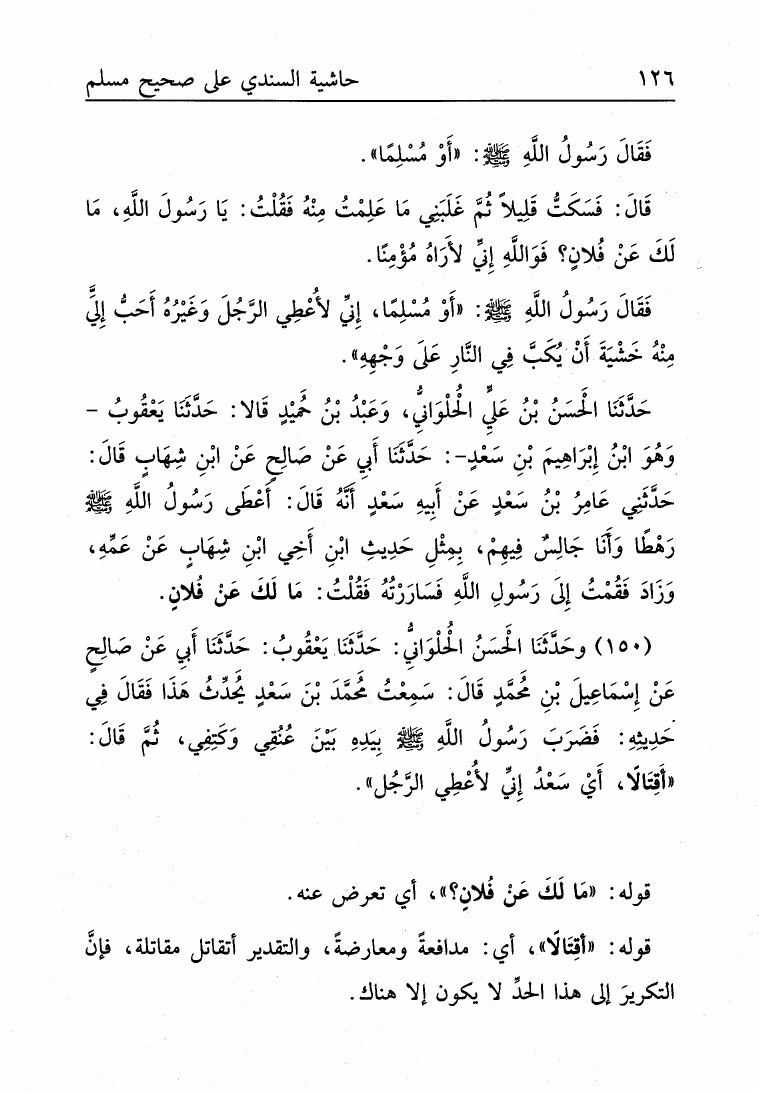 ١٢٦ حاشية السندي على صحيح مسلم
فَقَالَ رَسُولُ اللَّهِ ﷺ: «أَوْ مُسْلِمًا».
قَالَ: فَسَكَتُّ قَلِيلاً ثُمَّ غَلَبَنِي مَا عَلِمْتُ مِنْهُ فَقُلْتُ: يَا رَسُولَ اللَّهِ، مَا
لَكَ عَنْ فُلانٍ؟ فَوَاللَّهِ إِنِّي لأَرَاهُ مُؤْمِنًا.
فَقَالَ رَسُولُ اللَّهِ ﷺ: «أَوْ مُسْلِمًا، إِنِّي لأُعْطِي الرَّجُلَ وَغَيْرُهُ أَحَبُّ إِلَيَّ
مِنْهُ خَشْيَةَ أَنْ يُكَبَّ فِي النَّارِ عَلَى وَجْهِهِ».
حَدَّثَنَا الْحَسَنُ بْنُ عَلِيٍّ الْحُلْوَانيُّ، وَعَبْدُ بْنُ حُمَيْدٍ قَالا: حَدَّثَنَا يَعْقُوبُ -
وَهُوَ ابْنُ إِبْرَاهِيمَ بْنِ سَعْدٍ-: حَدَّثَنَا أَبِي عَنْ صَالِحٍ عَنْ ابْنِ شِهَابٍ قَالَ:
حَدَّثَنِي عَامِرُ بْنُ سَعْدٍ عَنْ أَبِيهِ سَعْدٍ أَنَّهُ قَالَ: أَعْطَى رَسُولُ اللَّهِ ﷺ
رَهْطًا وَأَنَا جَالِسٌ فِيهِمْ، بِمِثْلِ حَدِيثِ ابْنِ أَخِي ابْنِ شِهَابٍ عَنْ عَمِّهِ،
وَزَادَ فَقُمْتُ إِلَى رَسُولِ اللَّهِ فَسَارَرْتُهُ فَقُلْتُ: مَا لَكَ عَنْ فُلانٍ.
(١٥٠) وحَدَّثَنَا الْحَسَنُ الْحُلْوَانيُّ: حَدَّثَنَا يَعْقُوبُ: حَدَّثَنَا أَبِي عَنْ صَالِحٍ
عَنْ إِسْمَاعِيلَ بْنِ مُحَمَّدٍ قَالَ: سَمِعْتُ مُحَمَّدَ بْنَ سَعْدٍ يُحَدِّثُ هَذَا فَقَالَ فِي
حَدِيثِهِ: فَضَرَبَ رَسُولُ اللَّهِ ﷺ بِيَدِهِ بَيْنَ عُنُقِي وَكَتِفِي، ثُمَّ قَالَ:
«أَقِتَالًا، أَيْ سَعْدُ إِنِّي لأُعْطِي الرَّجُل».
قوله: «مَا لَكَ عَنْ فُلانٍ؟»، أي تعرض عنه.
قوله: «أَقِتَالًا»، أي: مدافعةً ومعارضةً، والتقدير أتقاتل مقاتلة، فإنَّ
التكريرَ إلى هذا الحدِّ لا يكون إلا هناك.